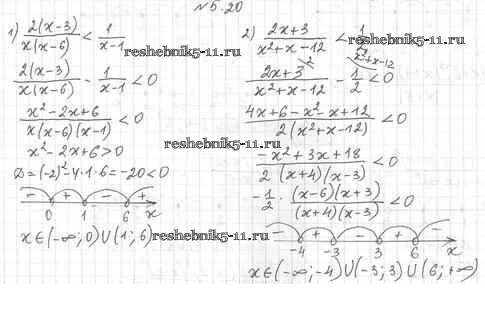 №5.20
1) 2(x-3)/x(x-6) < 1/x-1
2(x-3)/x(x-6) - 1/x-1 < 0
x²-2x+6/x(x-6)(x-1) < 0
x²-2x+6>0
D=(-2)²-4·1·6=-20<0
- + - +
0 1 6 x
x∈(-∞;0)∪(1;6)
2) 2x+3/x²+x-12 < 1/2
2x+3/x²+x-12 - 1/2 < 0
4x+6-x²-x+12/2(x²+x-12) < 0
-x²+3x+18/2(x+4)(x-3) < 0
-1/2 · (x-6)(x+3)/(x+4)(x-3) < 0
- + - + -
-4 -3 3 6 x
x∈(-∞;-4)∪(-3;3)∪(6;+∞)
reshebnik5-11.ru
reshebnik5-11.ru
reshebnik5-11.ru
reshebnik5-11.ru